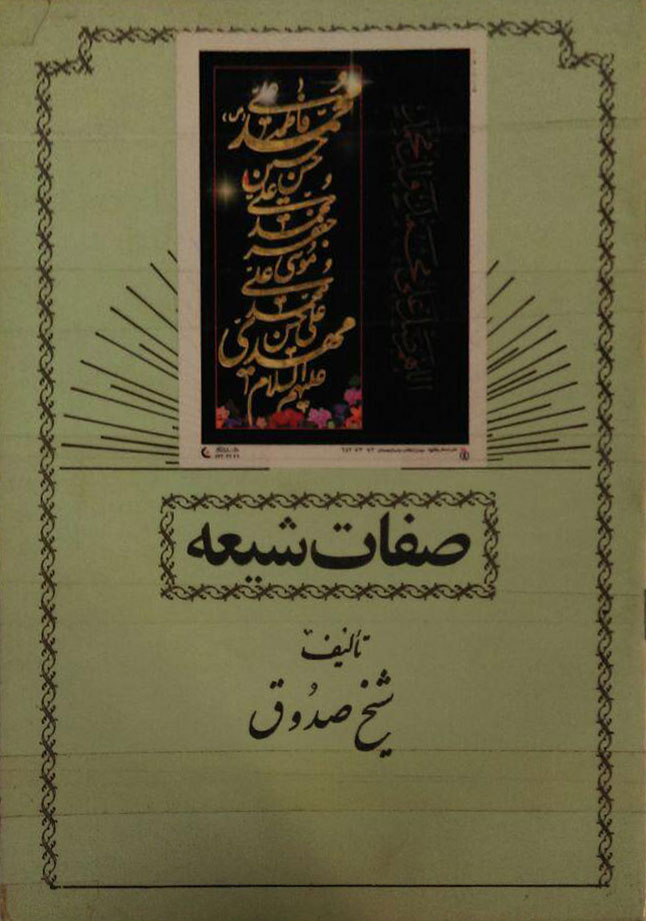 محمد (ص)
علی فاطمه
حسن حسین
علی
محمد
جعفر
موسی علی
محمد
علی حسن
مهدی
علیهم السلام
اللهم صل علی محمد و آل محمد
صفات شیعه
تألیف
شیخ صدوق